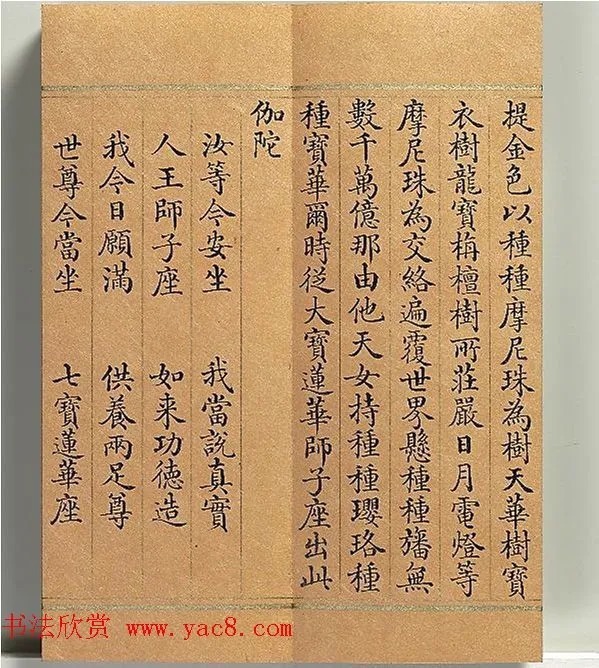 提金色以種種摩尼珠為樹天華樹寶
衣樹龍寶栴檀樹所莊嚴日月電燈等
摩尼珠為交絡遍覆世界懸種種旛無
數千萬億那由他天女持種種瓔珞種
種寶華爾時從大寶蓮華師子座出此
伽陀
汝等令安坐　我當說真實
人王師子座　如來功德造
我今日願滿　供養兩足尊
世尊今當坐　七寶蓮華座
书法欣赏 www.yac8.com